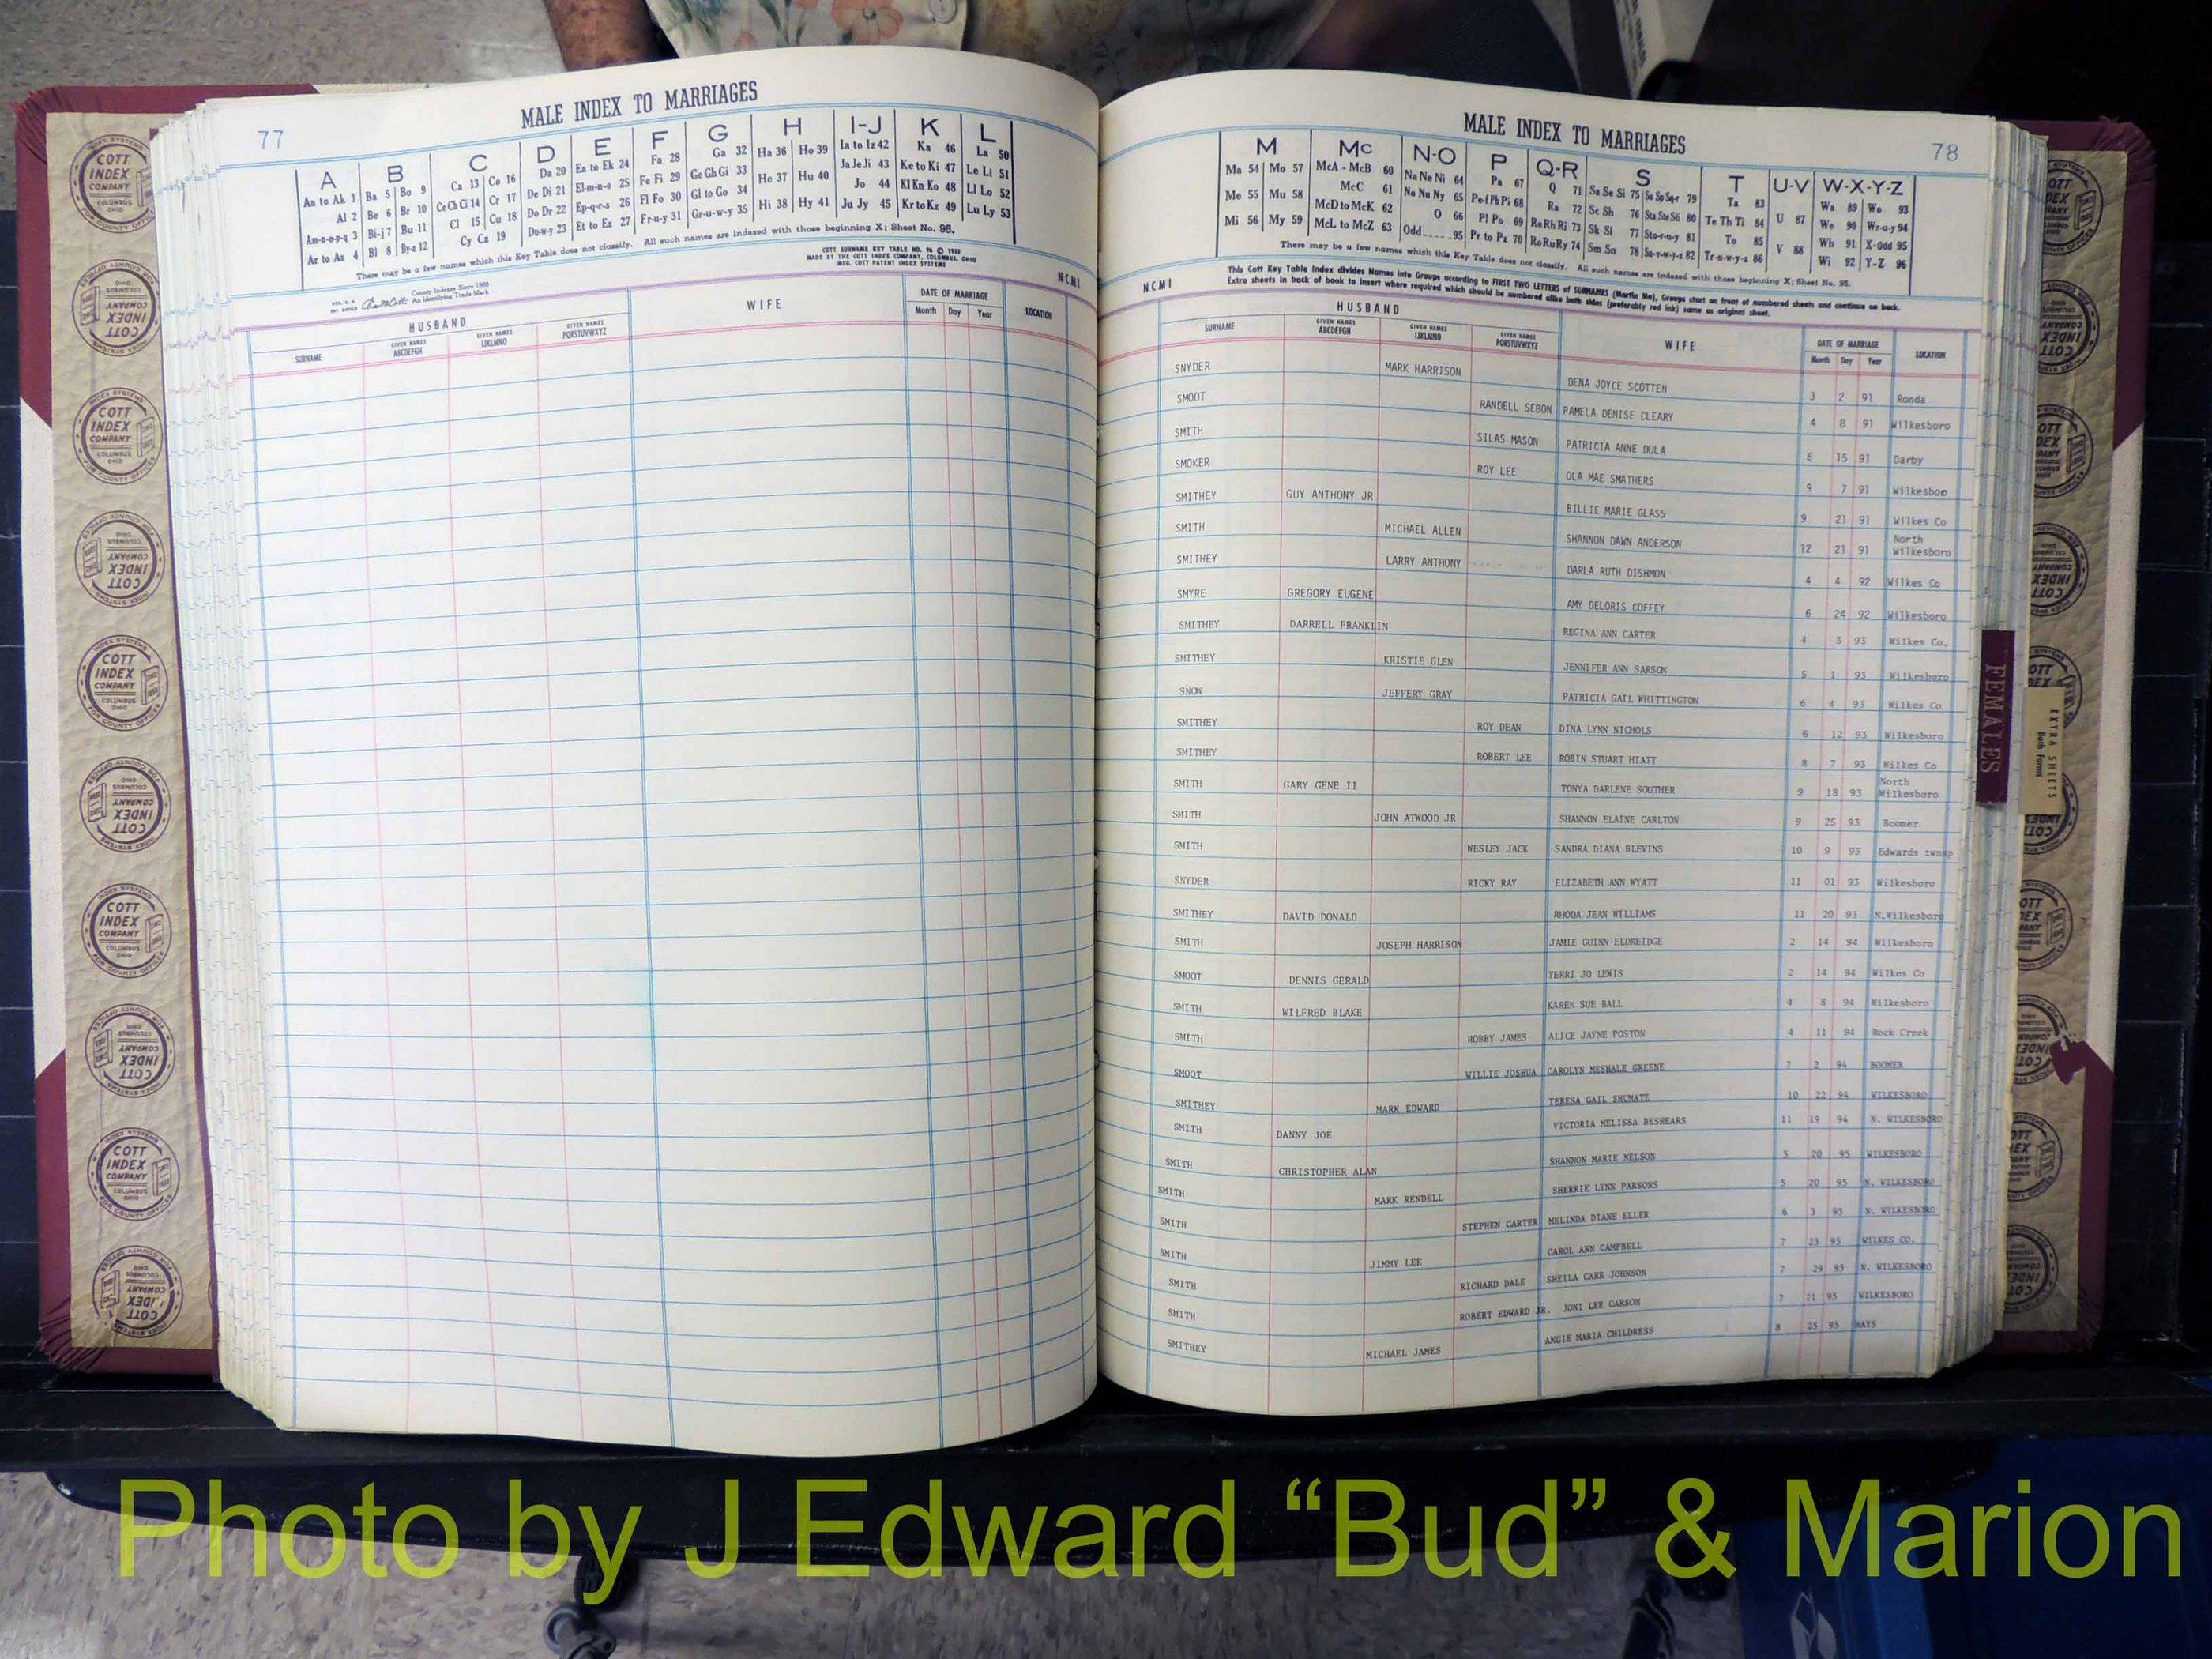 77
MALE INDEX TO MARRIAGES
A B C D E F G H I-J K L
Aa to Ak 1 Ba 5 Bo 9 Ca 13 Co 16 Da 20 Ea to Ek 24 Fa 28 Ga 32 Ha 36 Ho 39 Ia to Iz 42 Ka 46 La 50
Al 2 Be 6 Br 10 Ce Ch Ci 14 Cr 17 De Di 21 El-m-n-o 25 Fe Fi 29 Ge Gh Gi 33 He 37 Hu 40 Ja Je Ji 43 Ke to Ki 47 Le Li 51
Am-n-o-p-q 3 Bi-j 7 Bu 11 Cl 15 Cu 18 Do Dr 22 Ep-q-r-s 26 Fl Fo 30 Gl to Go 34 Hi 38 Hy 41 Jo 44 Kl Kn Ko 48 Ll Lo 52
Ar to Az 4 Bl 8 By-z 12 Cy Cz 19 Du-w-y 23 Et to Ez 27 Fr-u-y 31 Gr-u-w-y 35 Ju Jy 45 Kr to Kz 49 Lu Ly 53
There may be a few names which this Key Table does not classify. All such names are indexed with those beginning X; Sheet No. 95.
COTT SURNAME KEY TABLE NO. 96 © 1952
MADE BY THE COTT INDEX COMPANY, COLUMBUS, OHIO
MFG. COTT PATENT INDEX SYSTEMS
County Indexes Since 1888
An Identifying Trade Mark
NCMI
HUSBAND WIFE DATE OF MARRIAGE LOCATION
SURNAME GIVEN NAMES ABCDEFGH GIVEN NAMES IJKLMNO GIVEN NAMES PQRSTUVWXYZ Month Day Year
MALE INDEX TO MARRIAGES
78
M Mc N-O P Q-R S T U-V W-X-Y-Z
Ma 54 Mo 57 McA - McB 60 Na Ne Ni 64 Pa 67 Q 71 Sa Se Si 75 So Sp Sq-r 79 Ta 83 Wa 89 Wo 93
Me 55 Mu 58 McC 61 No Nu Ny 65 Pe-f Ph Pi 68 Ra 72 Sc Sh 76 Sta Ste S6 80 Te Th Ti 84 U 87 We 90 Wr-u-y 94
McD to McK 62 O 66 Pl Po 69 Re Rh Ri 73 Sk Sl 77 Sto-r-u-y 81 To 85 Wh 91 X-Odd 95
Mi 56 My 59 McL to McZ 63 Odd 95 Pr to Pz 70 Ro Ru Ry 74 Sm Sn 78 Su-v-w-y-z 82 Tr-u-w-y-z 86 V 88 Wi 92 Y-Z 96
There may be a few names which this Key Table does not classify. All such names are indexed with those beginning X; Sheet No. 95.
This Cott Key Table Index divides Names into Groups according to FIRST TWO LETTERS of SURNAMES (Martin Ma), Groups start on front of numbered sheets and continue on back.
Extra sheets in back of book to insert where required which should be numbered alike both sides (preferably red ink) same as original sheet.
NCMI
HUSBAND WIFE DATE OF MARRIAGE LOCATION
SURNAME GIVEN NAMES ABCDEFGH GIVEN NAMES IJKLMNO GIVEN NAMES PQRSTUVWXYZ Month Day Year
SNYDER MARK HARRISON DENA JOYCE SCOTTEN 3 2 91 Ronda
SMOOT RANDELL SEBON PAMELA DENISE CLEARY 4 8 91 Wilkesboro
SMITH SILAS MASON PATRICIA ANNE DULA 6 15 91 Darby
SMOKER ROY LEE OLA MAE SMATHERS 9 7 91 Wilkesboro
SMITHEY GUY ANTHONY JR BILLIE MARIE GLASS 9 21 91 Wilkes Co
SMITH MICHAEL ALLEN SHANNON DAWN ANDERSON 12 21 91 North Wilkesboro
SMITHEY LARRY ANTHONY DARLA RUTH DISHMON 4 4 92 Wilkes Co
SMYRE GREGORY EUGENE AMY DELORIS COFFEY 6 24 92 Wilkesboro
SMITHEY DARRELL FRANKLIN REGINA ANN CARTER 4 3 93 Wilkes Co.
SMITHEY KRISTIE GLEN JENNIFER ANN SARSON 5 1 93 Wilkesboro
SNOW JEFFERY GRAY PATRICIA GAIL WHITTINGTON 6 4 93 Wilkes Co
SMITHEY ROY DEAN DINA LYNN NICHOLS 6 12 93 Wilkesboro
SMITHEY ROBERT LEE ROBIN STUART HIATT 8 7 93 Wilkes Co
SMITH GARY GENE II TONYA DARLENE SOUTHER 9 18 93 North Wilkesboro
SMITH JOHN ATWOOD JR SHANNON ELAINE CARLTON 9 25 93 Boomer
SMITH WESLEY JACK SANDRA DIANA BLEVINS 10 9 93 Edwards twnsp
SNYDER RICKY RAY ELIZABETH ANN WYATT 11 01 93 Wilkesboro
SMITHEY DAVID DONALD RHODA JEAN WILLIAMS 11 20 93 N.Wilkesboro
SMITH JOSEPH HARRISON JAMIE GUINN ELDREIDGE 2 14 94 Wilkesboro
SMOOT DENNIS GERALD TERRI JO LEWIS 2 14 94 Wilkes Co
SMITH WILFRED BLAKE KAREN SUE BALL 4 8 94 Wilkesboro
SMITH ROBBY JAMES ALICE JAYNE POSTON 4 11 94 Rock Creek
SMOOT WILLIE JOSHUA CAROLYN MESHALE GREENE 7 2 94 BOOMER
SMITHEY MARK EDWARD TERESA GAIL SHUMATE 10 22 94 WILKESBORO
SMITH DANNY JOE VICTORIA MELISSA BESHEARS 11 19 94 N. WILKESBORO
SMITH CHRISTOPHER ALAN SHANNON MARIE NELSON 5 20 95 WILKESBORO
SMITH MARK RENDELL SHERRIE LYNN PARSONS 5 20 95 N. WILKESBORO
SMITH STEPHEN CARTER MELINDA DIANE ELLER 6 3 95 N. WILKESBORO
SMITH JIMMY LEE CAROL ANN CAMPBELL 7 23 95 WILKES CO.
SMITH RICHARD DALE SHEILA CARR JOHNSON 7 29 95 N. WILKESBORO
SMITH ROBERT EDWARD JR. JONI LEE CARSON 7 21 95 WILKESBORO
SMITHEY MICHAEL JAMES ANGIE MARIA CHILDRESS 8 25 95 HAYS
FEMALES
EXTRA SHEETS
Both Forms
COTT INDEX COMPANY COLUMBUS OHIO
INDEX SYSTEMS FOR COUNTY OFFICES
Photo by J Edward “Bud” & Marion